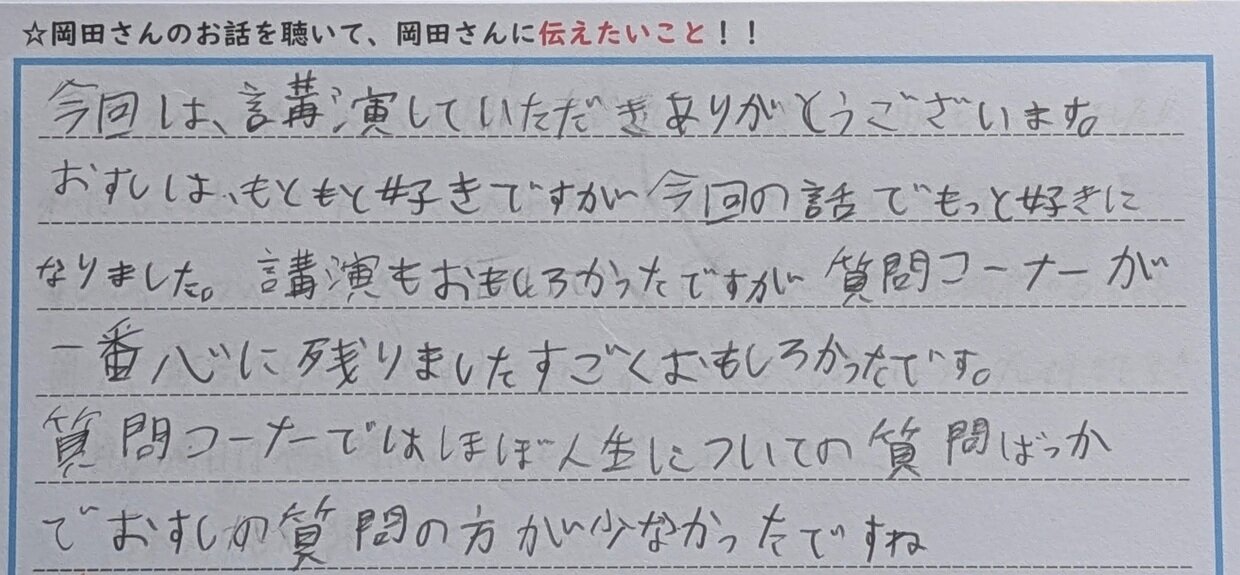 ☆岡田さんのお話を聴いて、岡田さんに伝えたいこと！！
今回は、講演していただきありがとうございます。
おすしは、もともと好きですが今回の話でもっと好きに
なりました。講演もおもしろかったですが質問コーナーが
一番心に残りましたすごくおもしろかったです。
質問コーナーではほぼ人生についての質問ばっか
でおすしの質問の方が少なかったですね